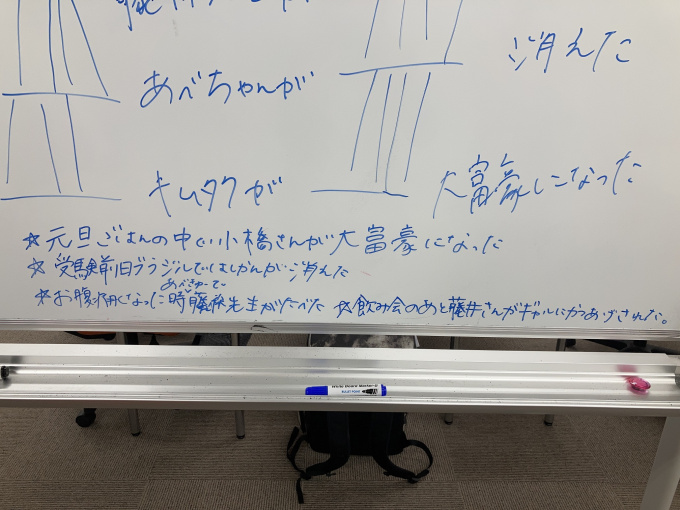 あべちゃんが
消えた
キムタクが
大富豪になった
☆元旦ごはんの中で小橋さんが大富豪になった
☆受験前日ブラジルではしかんが消えた
あべきゅーで
☆お腹痛くなった時藤孫先生がたべた ☆飲み会のあと藤井さんがギャルにかつあげされた。
White Board Marker
BULLET POINT